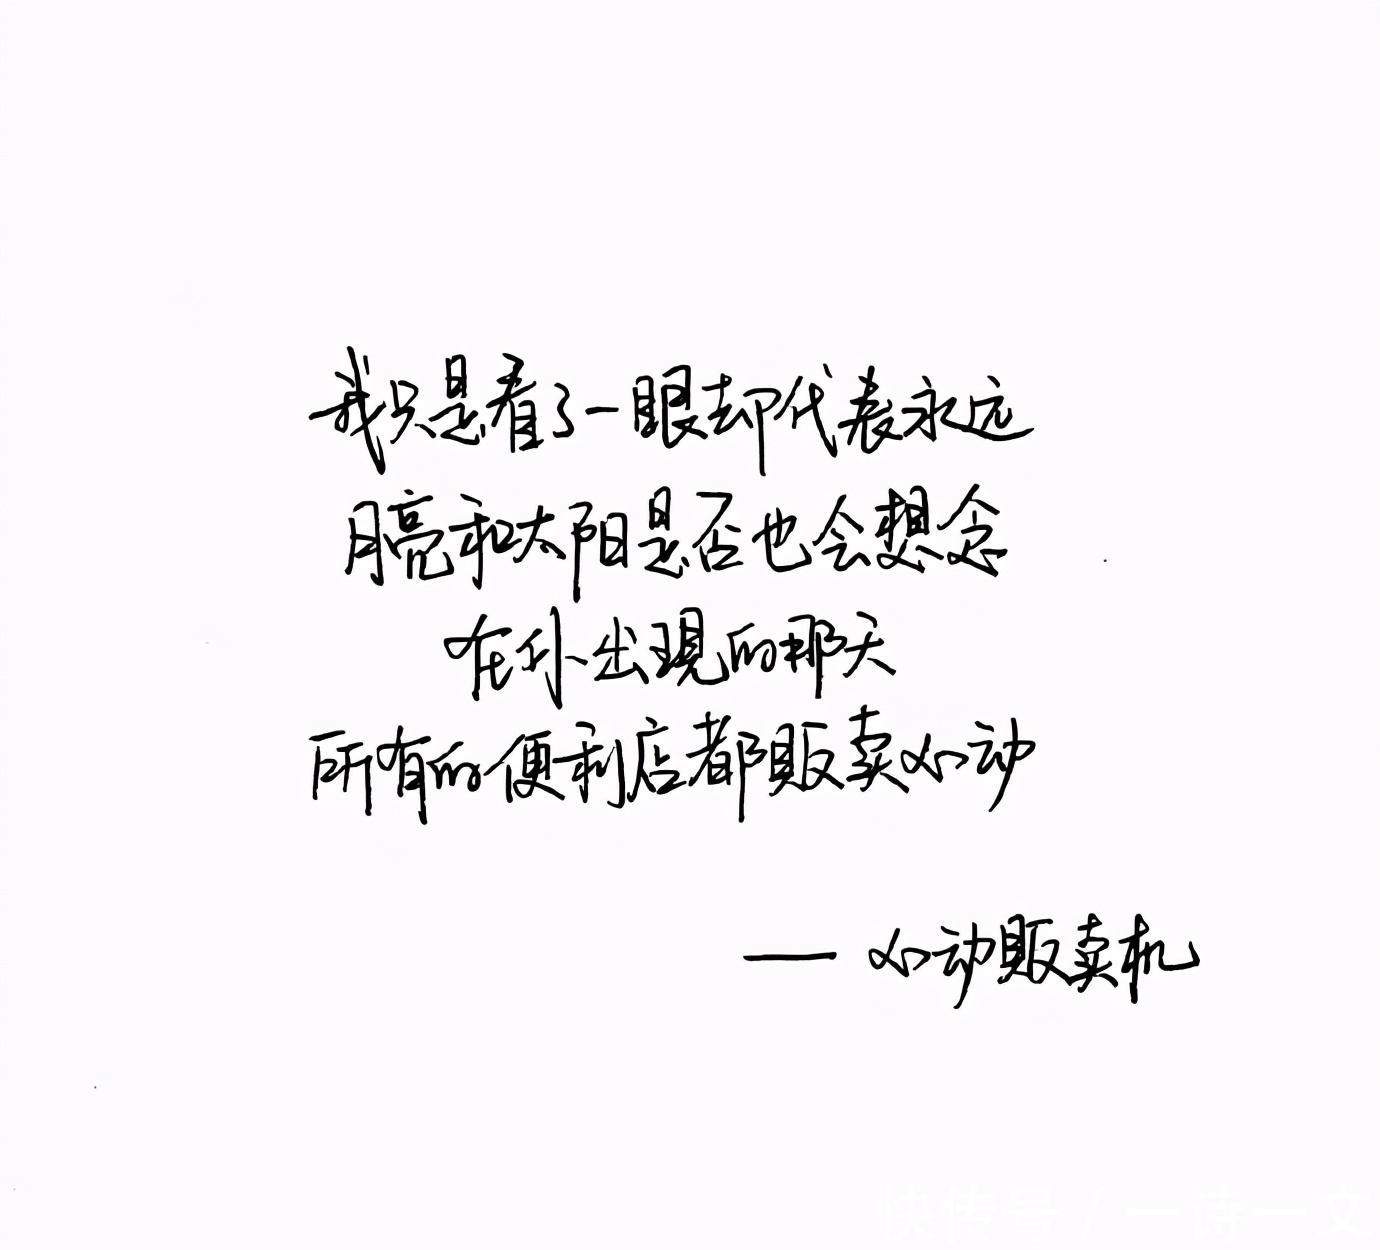 我只是看了一眼却代表永远
月亮和太阳是否也会想念
在你出现的那天
所有的便利店都贩卖心动
— 心动贩卖机
快传号 / 一诗一文